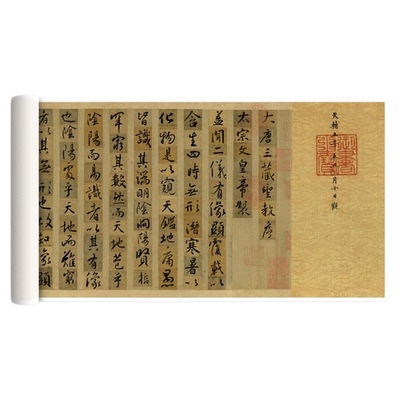 大唐三藏聖教序
太宗文皇帝製
蓋聞二儀有像顯覆載以
含生四時無形潛寒暑以
化物是以窺天鑑地庸愚
皆識其端明陰洞陽賢哲
罕窮其數然而天地苞乎
陰陽而易識者以其有像
也陰陽處乎天地而難窮
者以其無形也故知象顯